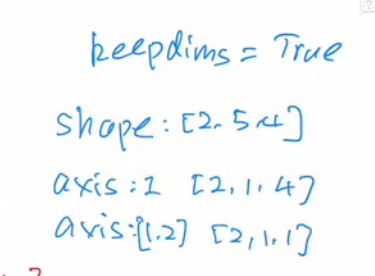 keepdims = True
shape: [2. 5. 4]
axis: 1 [2, 1, 4]
axis: [1.2] [2, 1. 1]